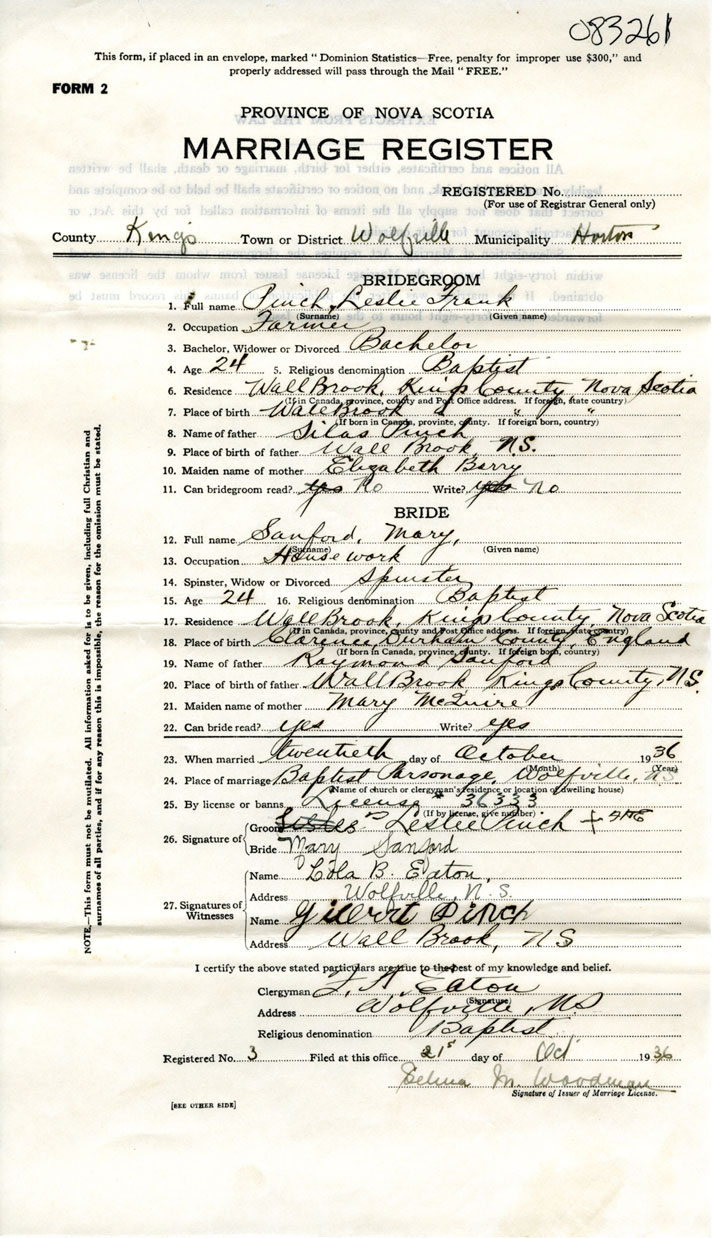 083261
This form, if placed in an envelope, marked "Dominion Statistics—Free, penalty for improper use $300," and
properly addressed will pass through the Mail "FREE."
FORM 2
PROVINCE OF NOVA SCOTIA
MARRIAGE REGISTER
REGISTERED No.
(For use of Registrar General only)
County Kings Town or District Wolfville Municipality Horton
BRIDEGROOM
1. Full name Pinch, Leslie Frank
(Surname) (Given name)
2. Occupation Farmer
3. Bachelor, Widower or Divorced Bachelor
4. Age 24 5. Religious denomination Baptist
6. Residence Wall Brook, Kings County Nova Scotia
(If in Canada, province, county and Post Office address. If foreign, state country)
7. Place of birth Wall Brook " " "
(If born in Canada, province, county. If foreign born, country)
8. Name of father Silas Pinch
9. Place of birth of father Wall Brook, N.S.
10. Maiden name of mother Elizabeth Barry
11. Can bridegroom read? yes No Write? yes No
BRIDE
12. Full name Sanford, Mary,
(Surname) (Given name)
13. Occupation House work
14. Spinster, Widow or Divorced Spinster
15. Age 24 16. Religious denomination Baptist
17. Residence Wall Brook, Kings County, Nova Scotia
(If in Canada, province, county and Post Office address. If foreign, state country)
18. Place of birth Clarence, Durham County, England
(If born in Canada, province, county. If foreign born, country)
19. Name of father Raymond Sanford
20. Place of birth of father Wall Brook, Kings County, N.S.
21. Maiden name of mother Mary McGuire
22. Can bride read? yes Write? yes
23. When married twentieth day of October 1936
(Month) (Year)
24. Place of marriage Baptist Parsonage, Wolfville, N.S.
(Name of church or clergyman's residence or location of dwelling house)
25. By license or banns License # 36333
(If by license, give number)
26. Signature of Groom Leslie Pinch +
Bride Mary Sanford
27. Signatures of Witnesses
Name Lola B. Eaton,
Address Wolfville, N.S.
Name Gilbert Pinch
Address Wall Brook, NS
I certify the above stated particulars are true to the best of my knowledge and belief.
Clergyman Eaton
(Signature)
Address Wolfville, NS
Religious denomination Baptist
Registered No. 3 Filed at this office 21st day of Oct 1936
Selma M. Woodman
Signature of Issuer of Marriage License.
[SEE OTHER SIDE]
NOTE.—This form must not be mutilated. All information asked for is to be given, including full Christian and
surnames of all parties, and if for any reason this is impossible, the reason for the omission must be stated.